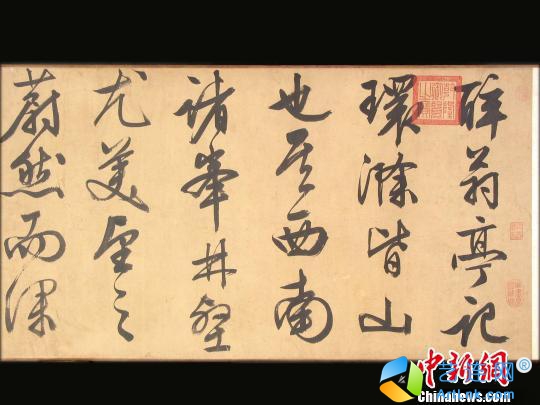 醉翁亭記
環滁皆山
也其西南
諸峯林壑
尤美望之
蔚然而深
中新網®
Chinanews.com